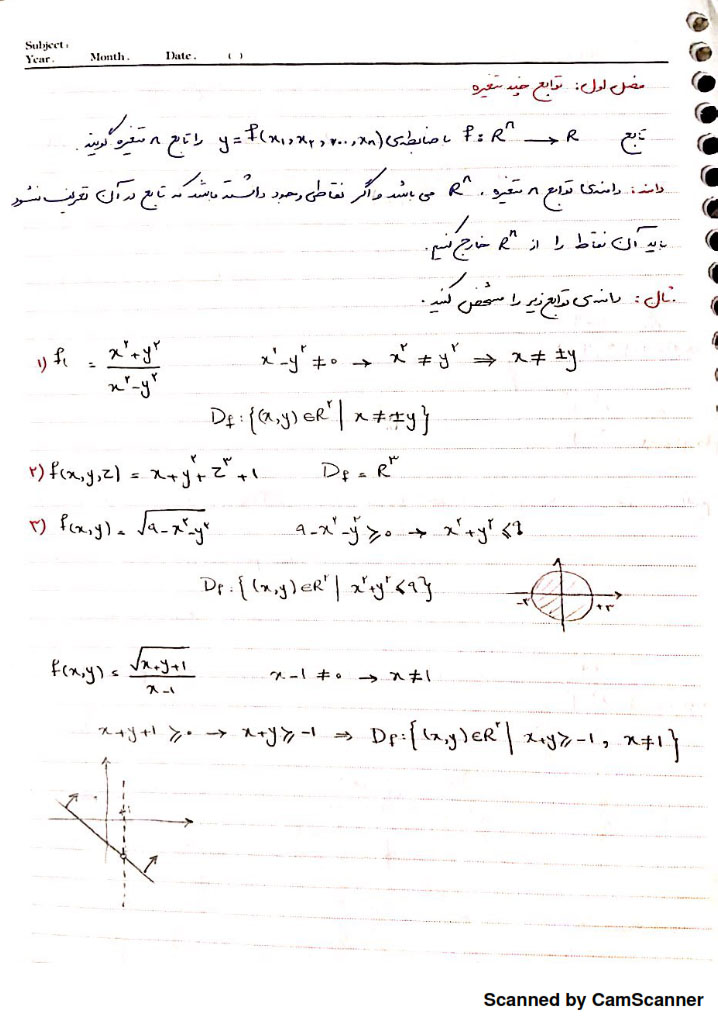 Subject:
Year. Month. Date. ( )
فصل اول: توابع چند متغیره
تابع f: Rⁿ → R با ضابطه‌ی y = f(x₁, x₂, ..., xₙ) را تابع n متغیره گویند.
دامنه: دامنه‌ی توابع n متغیره، Rⁿ می باشد و اگر نقاطی وجود داشته باشد که تابع در آن تعریف نشود
باید آن نقاط را از Rⁿ خارج کنیم.
مثال: دامنه‌ی توابع زیر را مشخص کنید.
۱) f₁ = (x²+y²)/(x²-y²) x²-y² ≠ 0 → x² ≠ y² ⇒ x ≠ ±y
D_f: {(x,y) ∈ R² | x ≠ ±y}
۲) f(x,y,z) = x+y²+z³+1 D_f = R³
۳) f(x,y) = √(9-x²-y²) 9-x²-y² ≥ 0 → x²+y² ≤ 9
D_f: {(x,y) ∈ R² | x²+y² ≤ 9} -۳ +۳
f(x,y) = √(x+y+1)/(x-1) x-1 ≠ 0 → x ≠ 1
x+y+1 ≥ 0 → x+y ≥ -1 ⇒ D_f: {(x,y) ∈ R² | x+y ≥ -1, x ≠ 1}
Scanned by CamScanner